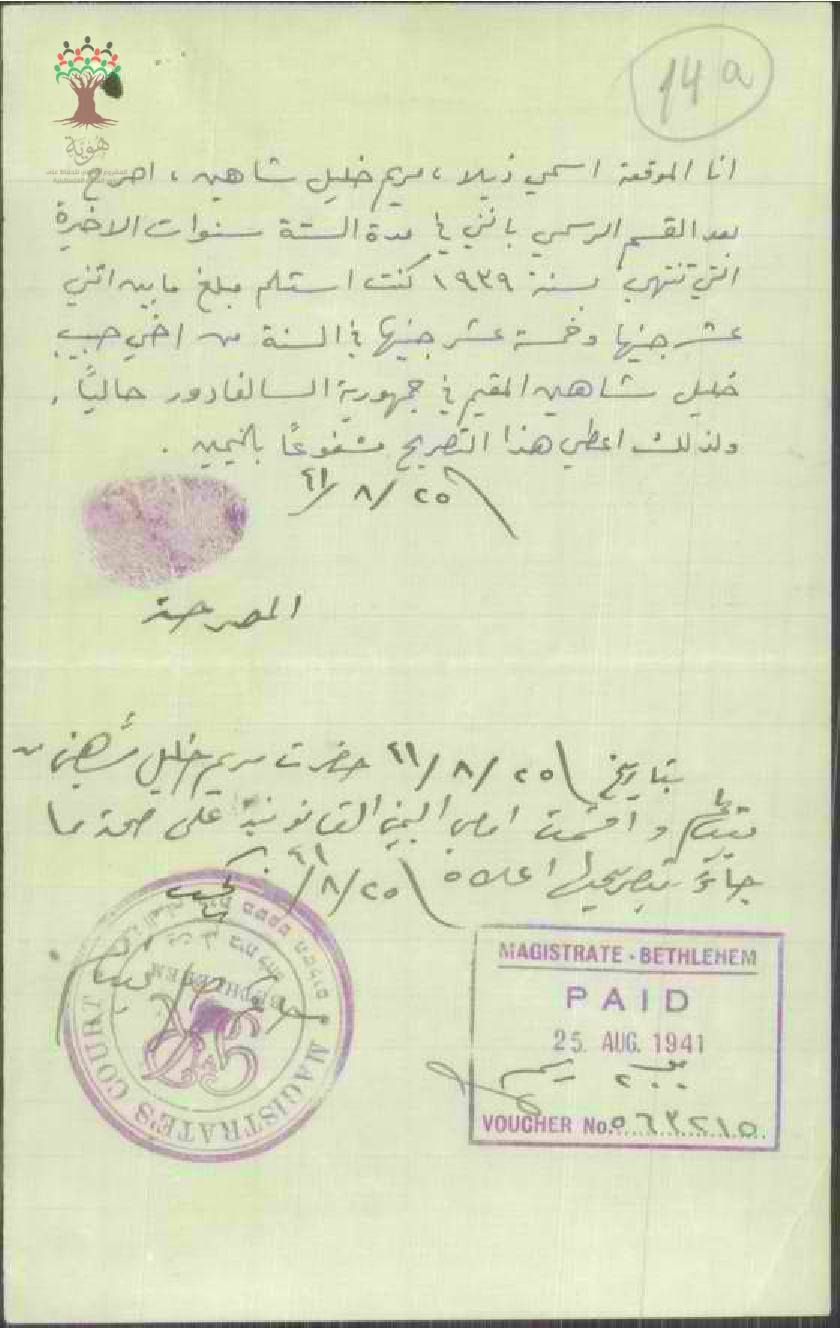 14 a
هُوِيَّة
انا الموقعة اسمي ذيلا ، مريم خليل شاهين ، اصرح
بعد القسم الرسمي بانني في مدة الستة سنوات الاخيرة
التي تنتهي بسنة ١٩٣٩ كنت استلم مبلغ ما بين اثني
عشر جنيها وخمسة عشر جنيها في السنة من اخي حبيب
خليل شاهين المقيم في جمهورية السالفادور حاليًا .
ولذلك اعطي هذا التصريح مشفوعًا باليمين .
٢٥/٨/٤١
المصرحة
بتاريخ ٢٥/٨/٤١ حضرت مريم خليل شاهين من
واقسمت امامي اليمين القانونية على صحة ما
جاء بتصريحها اعلاه ٢٥/٨/٤١
MAGISTRATE'S COURT
BETHLEHEM
MAGISTRATE - BETHLEHEM
PAID
25. AUG. 1941
VOUCHER No.